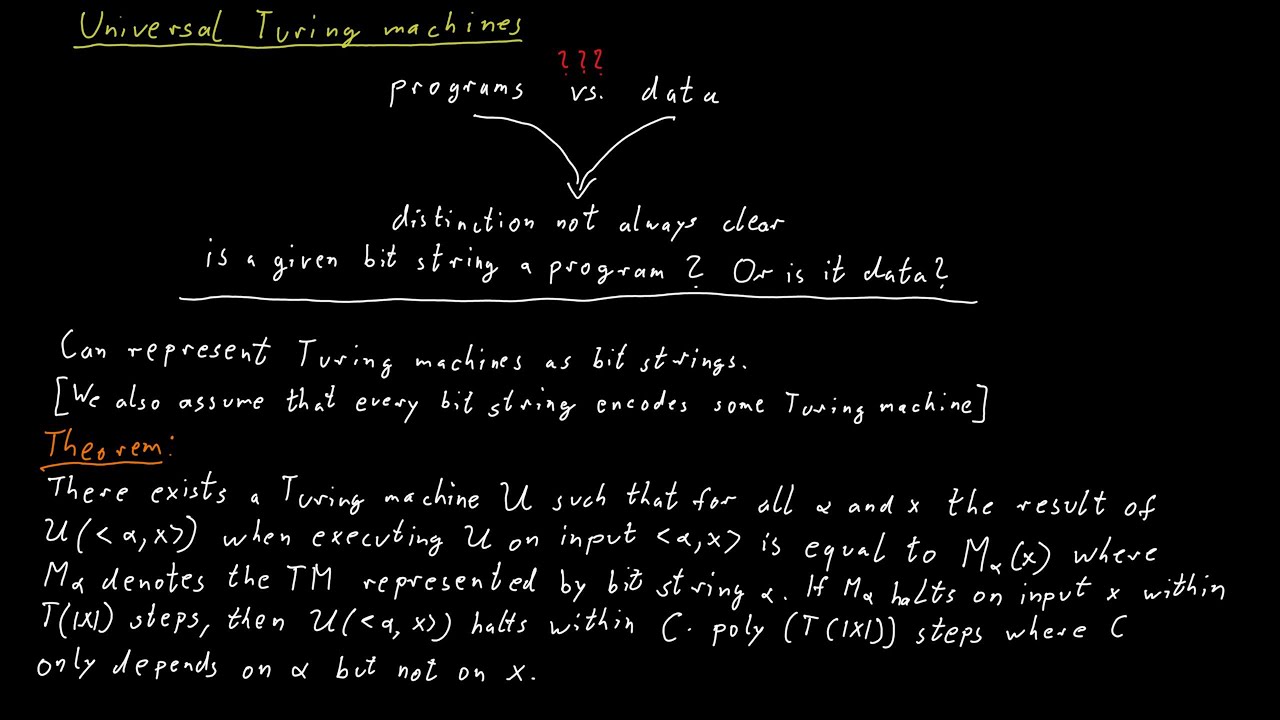 Universal Turing machines
???
programs vs. data
distinction not always clear
is a given bit string a program? Or is it data?
Can represent Turing machines as bit strings.
[We also assume that every bit string encodes some Turing machine]
Theorem:
There exists a Turing machine U such that for all α and x the result of
U(<α,x>) when executing U on input <α,x> is equal to Mα(x) where
Mα denotes the TM represented by bit string α. If Mα halts on input x within
T(|x|) steps, then U(<α,x>) halts within C · poly (T(|x|)) steps where C
only depends on α but not on x.